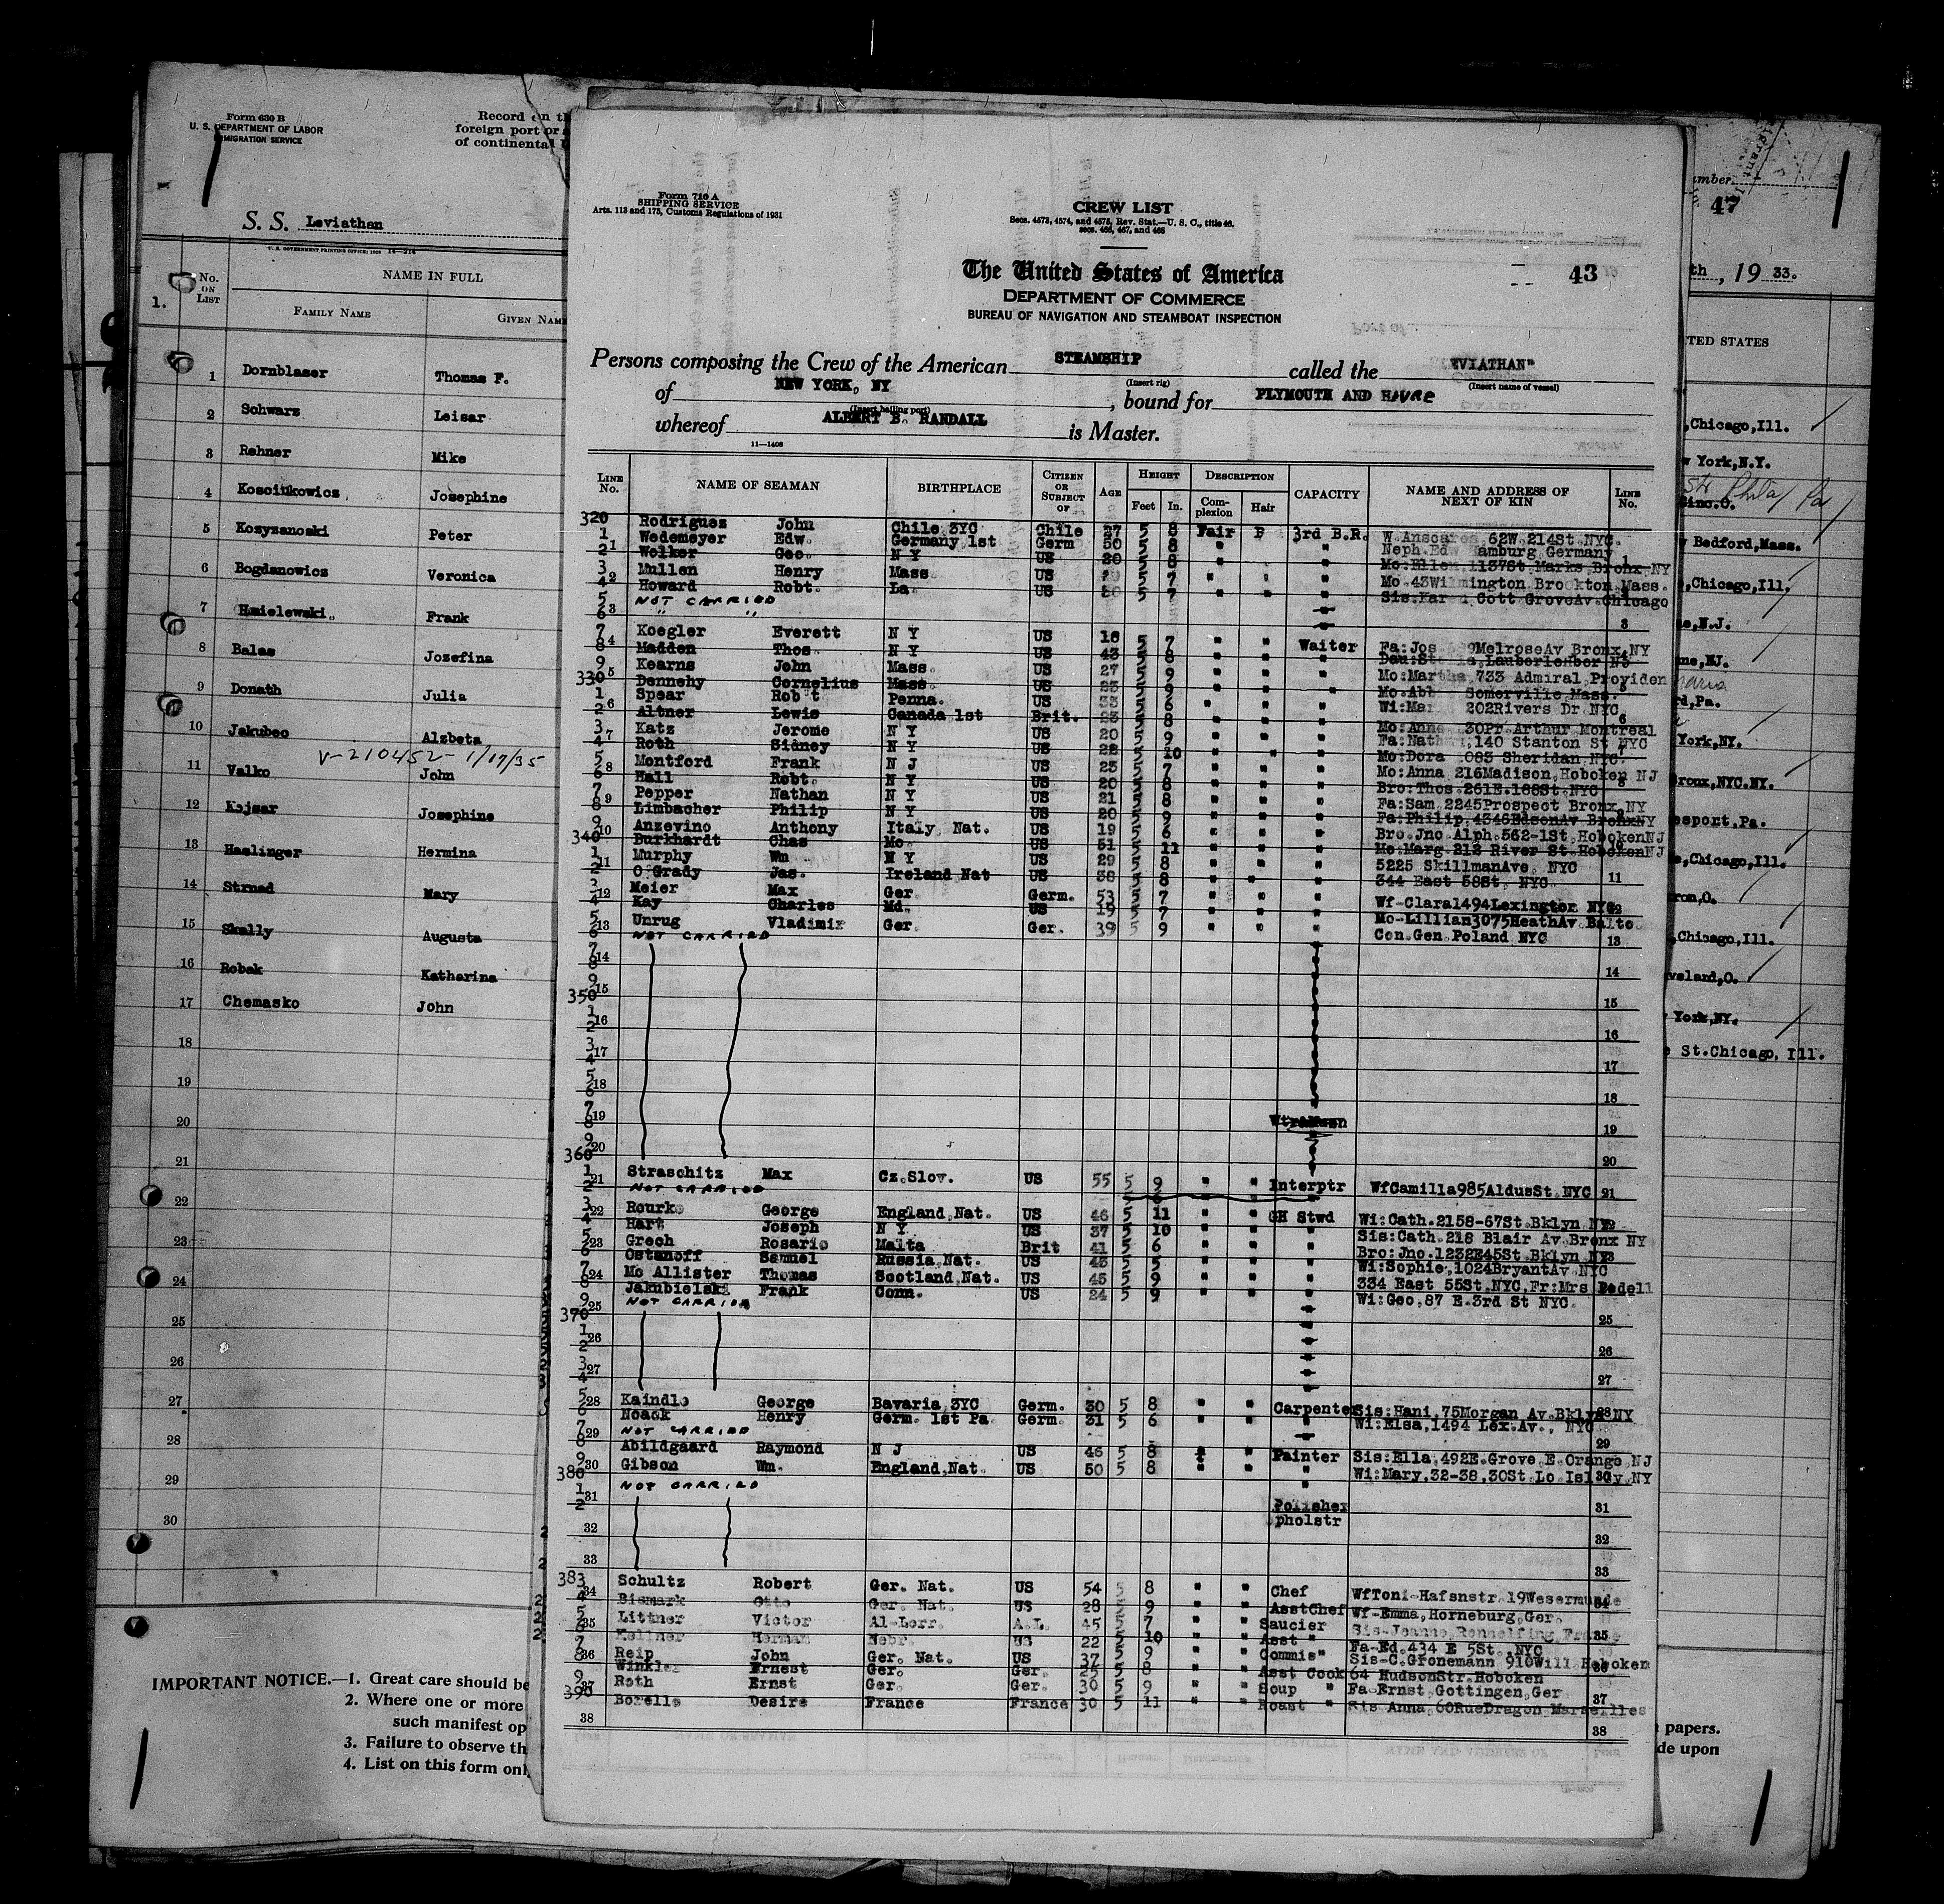 Form 630 B
U. S. DEPARTMENT OF LABOR
IMMIGRATION SERVICE
Record on th
foreign port or
of continental
S. S. Leviathan
NAME IN FULL
No. ON LIST
FAMILY NAME
GIVEN NAME
1.
1 Dornblaser Thomas F.
2 Schwarz Leisar
3 Rehner Mike
4 Kosciukowicz Josephine
5 Kozyzanoski Peter
6 Bogdanowicz Veronica
7 Hmielewski Frank
8 Balas Jozefina
9 Donath Julia
10 Jakubec Alzbeta
V-210452- 1/17/35
11 Valko John
12 Kajsar Josephine
13 Haslinger Hermina
14 Strnad Mary
15 Skally Augusta
16 Robak Katharina
17 Chemasko John
18
19
20
21
22
23
24
25
26
27
28
29
30
IMPORTANT NOTICE.—1. Great care should be
2. Where one or more
such manifest op
3. Failure to observe th
4. List on this form onl
Form 710 A
SHIPPING SERVICE
Arts. 113 and 175, Customs Regulations of 1931
CREW LIST
Secs. 4573, 4574, and 4575, Rev. Stat.—U. S. C., title 46.
secs. 465, 467, and 468
The United States of America
43
DEPARTMENT OF COMMERCE
BUREAU OF NAVIGATION AND STEAMBOAT INSPECTION
Persons composing the Crew of the American STEAMSHIP called the EVIATHAN"
(Insert rig) (Insert name of vessel)
of NEW YORK, NY, bound for PLYMOUTH AND HAVRE
(Insert hailing port)
whereof ALBERT B. RANDALL is Master.
11—1408
LINE No. NAME OF SEAMAN BIRTHPLACE CITIZEN OR SUBJECT OF AGE HEIGHT Feet In. DESCRIPTION Complexion Hair CAPACITY NAME AND ADDRESS OF NEXT OF KIN LINE No.
320 Rodriguez John Chile 3YC Chile 27 5 8 Fair B 3rd B.R. W. 62W.214St.NYC.
1 Wedemeyer Edw. Germany 1st Germ 50 5 8 " " Neph.Edw Hamburg Germany
2 Welker Geo. N Y US 20 5 8 " " Mo:Ellen 1137St Marks Bronx NY
3 Mullen Henry Mass US 5 7 " " Mo.43Wilmington Brockton Mass.
4 Howard Robt. La. US 5 7 " " Sis:Karen Cott GroveAv.Chicago
5 NOT CARRIED
6 " "
7 Koegler Everett N Y US 18 5 7 " " Waiter Fa:Jos. MelroseAv Bronx NY
8 Madden Thos. N Y US 43 5 8 " "
9 Kearns John Mass. US 27 5 9 " " Mo:Martha,733 Admiral Providen
330 Dennehy Cornelius Mass. US 5 9 " " Somerville Mass.
1 Spear Robt Penna. US 33 5 6 " " Wi:Mar 202Rivers Dr NYC
2 Altner Lewis Canada 1st Brit. 23 5 8 " " Mo:Anne 30Pr Arthur Montreal
3 Katz Jerome N Y US 20 5 9 " " Fa:Nath ,140 Stanton St NYC
4 Roth Sidney N Y US 22 5 10 " " Mo:Dora Sheridan NYC
5 Montford Frank N J US 25 5 7 " " Mo:Anna 216Madison,Hoboken NJ
6 Hall Robt. N Y US 20 5 8 " " Bro:Thos.261E.188St NYC
7 Pepper Nathan N Y US 21 5 8 " " Fa:Sam 2245Prospect Bronx NY
8 Limbacher Philip N Y US 20 5 9 " " Fa:Philip,4346EdsonAv BronxNY
9 Anzevino Anthony Italy, Nat. US 19 5 6 " " Bro.Jno Alph.562-1St.HobokenNJ
340 Burkhardt Chas Mo. US 51 5 11 " " Mo:Marg.212 River St.HobokenNJ
1 Murphy Wm N Y US 29 5 8 " " 5225 SkillmanAve, NYC
2 O'Grady Jas. Ireland Nat US 38 5 8 " " 344 East 58St. NYC
3 Meier Max Ger. Germ. 53 5 7 " " Wf-Clara1494Lexington NYC
4 Kay Charles Md. US 19 5 7 " " Mo-Lillian3075HeathAv Balto
5 Unrug Vladimir Ger. Ger. 39 5 9 " " Con.Gen.Poland NYC
6 NOT CARRIED
7
8
9
350
1
2
3
4
5
6
7
8
9
360
1 Straschitz Max Cz.Slov. US 55 5 9 " " Interptr WfCamilla985AldusSt.NYC
2 NOT CARRIED
3 Rourke George England,Nat. US 46 5 11 " " GH Stwd Wi:Cath.2158-67St.Bklyn NY
4 Hart Joseph N Y US 37 5 10 " " Sis:Cath.218 Blair Av Bronx NY
5 Grech Rosario Malta Brit 41 5 6 " " Bro:Jno.1232E45St Bklyn NY
6 Ostanoff Samuel Russia,Nat. US 43 5 5 " " Wi:Sophie,1024BryantAv NYC
7 Mc Allister Thomas Scotland,Nat. US 45 5 9 " " 334 East 55St.NYC,Fr:Mrs Bedell
8 Jakubielski Frank Conn. US 24 5 9 " " Wi:Geo,87 E.3rd St NYC.
9 NOT CARRIED
370
1
2
3
4
5 Kaindl George Bavaria 3YC Germ. 30 5 8 " " Carpenter Sis:Hani,75Morgan Av.Bklyn NY
6 Noack Henry Germ. 1st Pa. Germ. 31 5 6 " " Wi:Elsa,1494 Lex.Av., NYC
7 NOT CARRIED
8 Abildgaard Raymond N J US 46 5 8 " " Painter Sis:Ella,492E.Grove,E.Orange NJ
9 Gibson Wm. England,Nat. US 50 5 8 " " Wi:Mary,32-38,30St.Lo Isl Cy,NY
380 NOT CARRIED
1 Polisher
2 pholstr
383 Schultz Robert Ger. Nat. US 54 5 8 " " Chef WfToni-Hafsnstr.19Wesermunde
4 Bismark Otto Ger. Nat. US 28 5 9 " " AsstChef Wf-Emma,Horneburg,Ger.
5 Littner Victor Al-Lorr. A.L. 45 5 7 " " Saucier Sis-Jeanne,
6 Kellner Herman Nebr. US 22 5 10 " " Asst " Fa-Ed.434 E 5St.,NYC
7 Reip John Ger. Nat. US 37 5 9 " " Commis" Sis-C.Gronemann 910Will Hoboken
8 Winkler Ernest Ger. Ger. 25 5 8 " " Asst Cook 64 HudsonStr.Hoboken
9 Roth Ernst Ger. Ger. 30 5 9 " " Soup " Fa-Ernst,Gottingen,Ger
390 Borello Desire France France 30 5 11 " " Roast " Sis Anna,60RueDragon Marseilles
38
47
th , 19 33.
TED STATES
,Chicago,Ill.
York,N.Y.
St Phila Pa
Cinc.O.
Bedford,Mass.
,Chicago,Ill.
,N.J.
,NJ.
d,Pa.
York,NY.
ronx,NYC.NY.
esport,Pa.
,Chicago,Ill.
ron,O.
,Chicago,Ill.
veland,O.
York,NY.
St.Chicago, Ill.
papers.
de upon